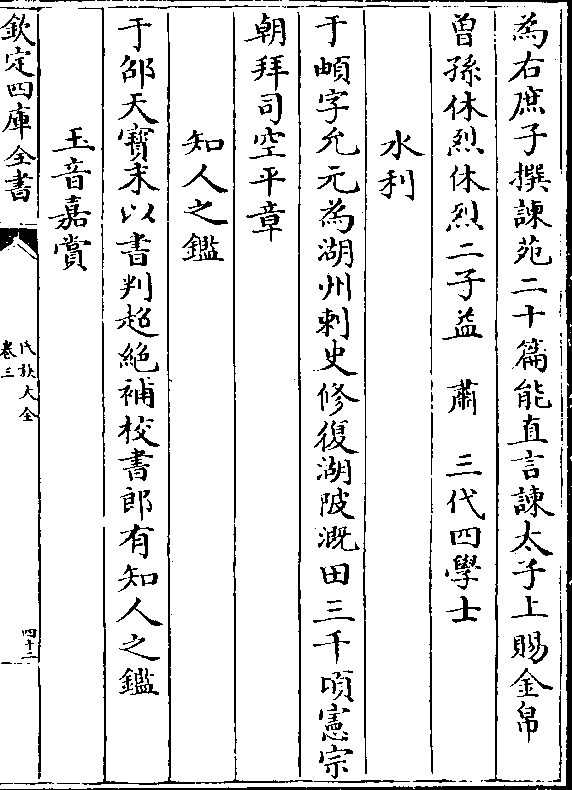 為右庶子撰諫苑二十篇能直言諫太子上賜金帛
曾孫休烈休烈二子益　肅　三代四學士
水利
于頔字允元為湖州刺史修復湖陂溉田三千頃憲宗
朝拜司空平章
知人之鑑
于邵天寶末以書判超絶補校書郎有知人之鑑
玉音嘉賞
欽定四庫全書
氏族大全
卷三
四十二